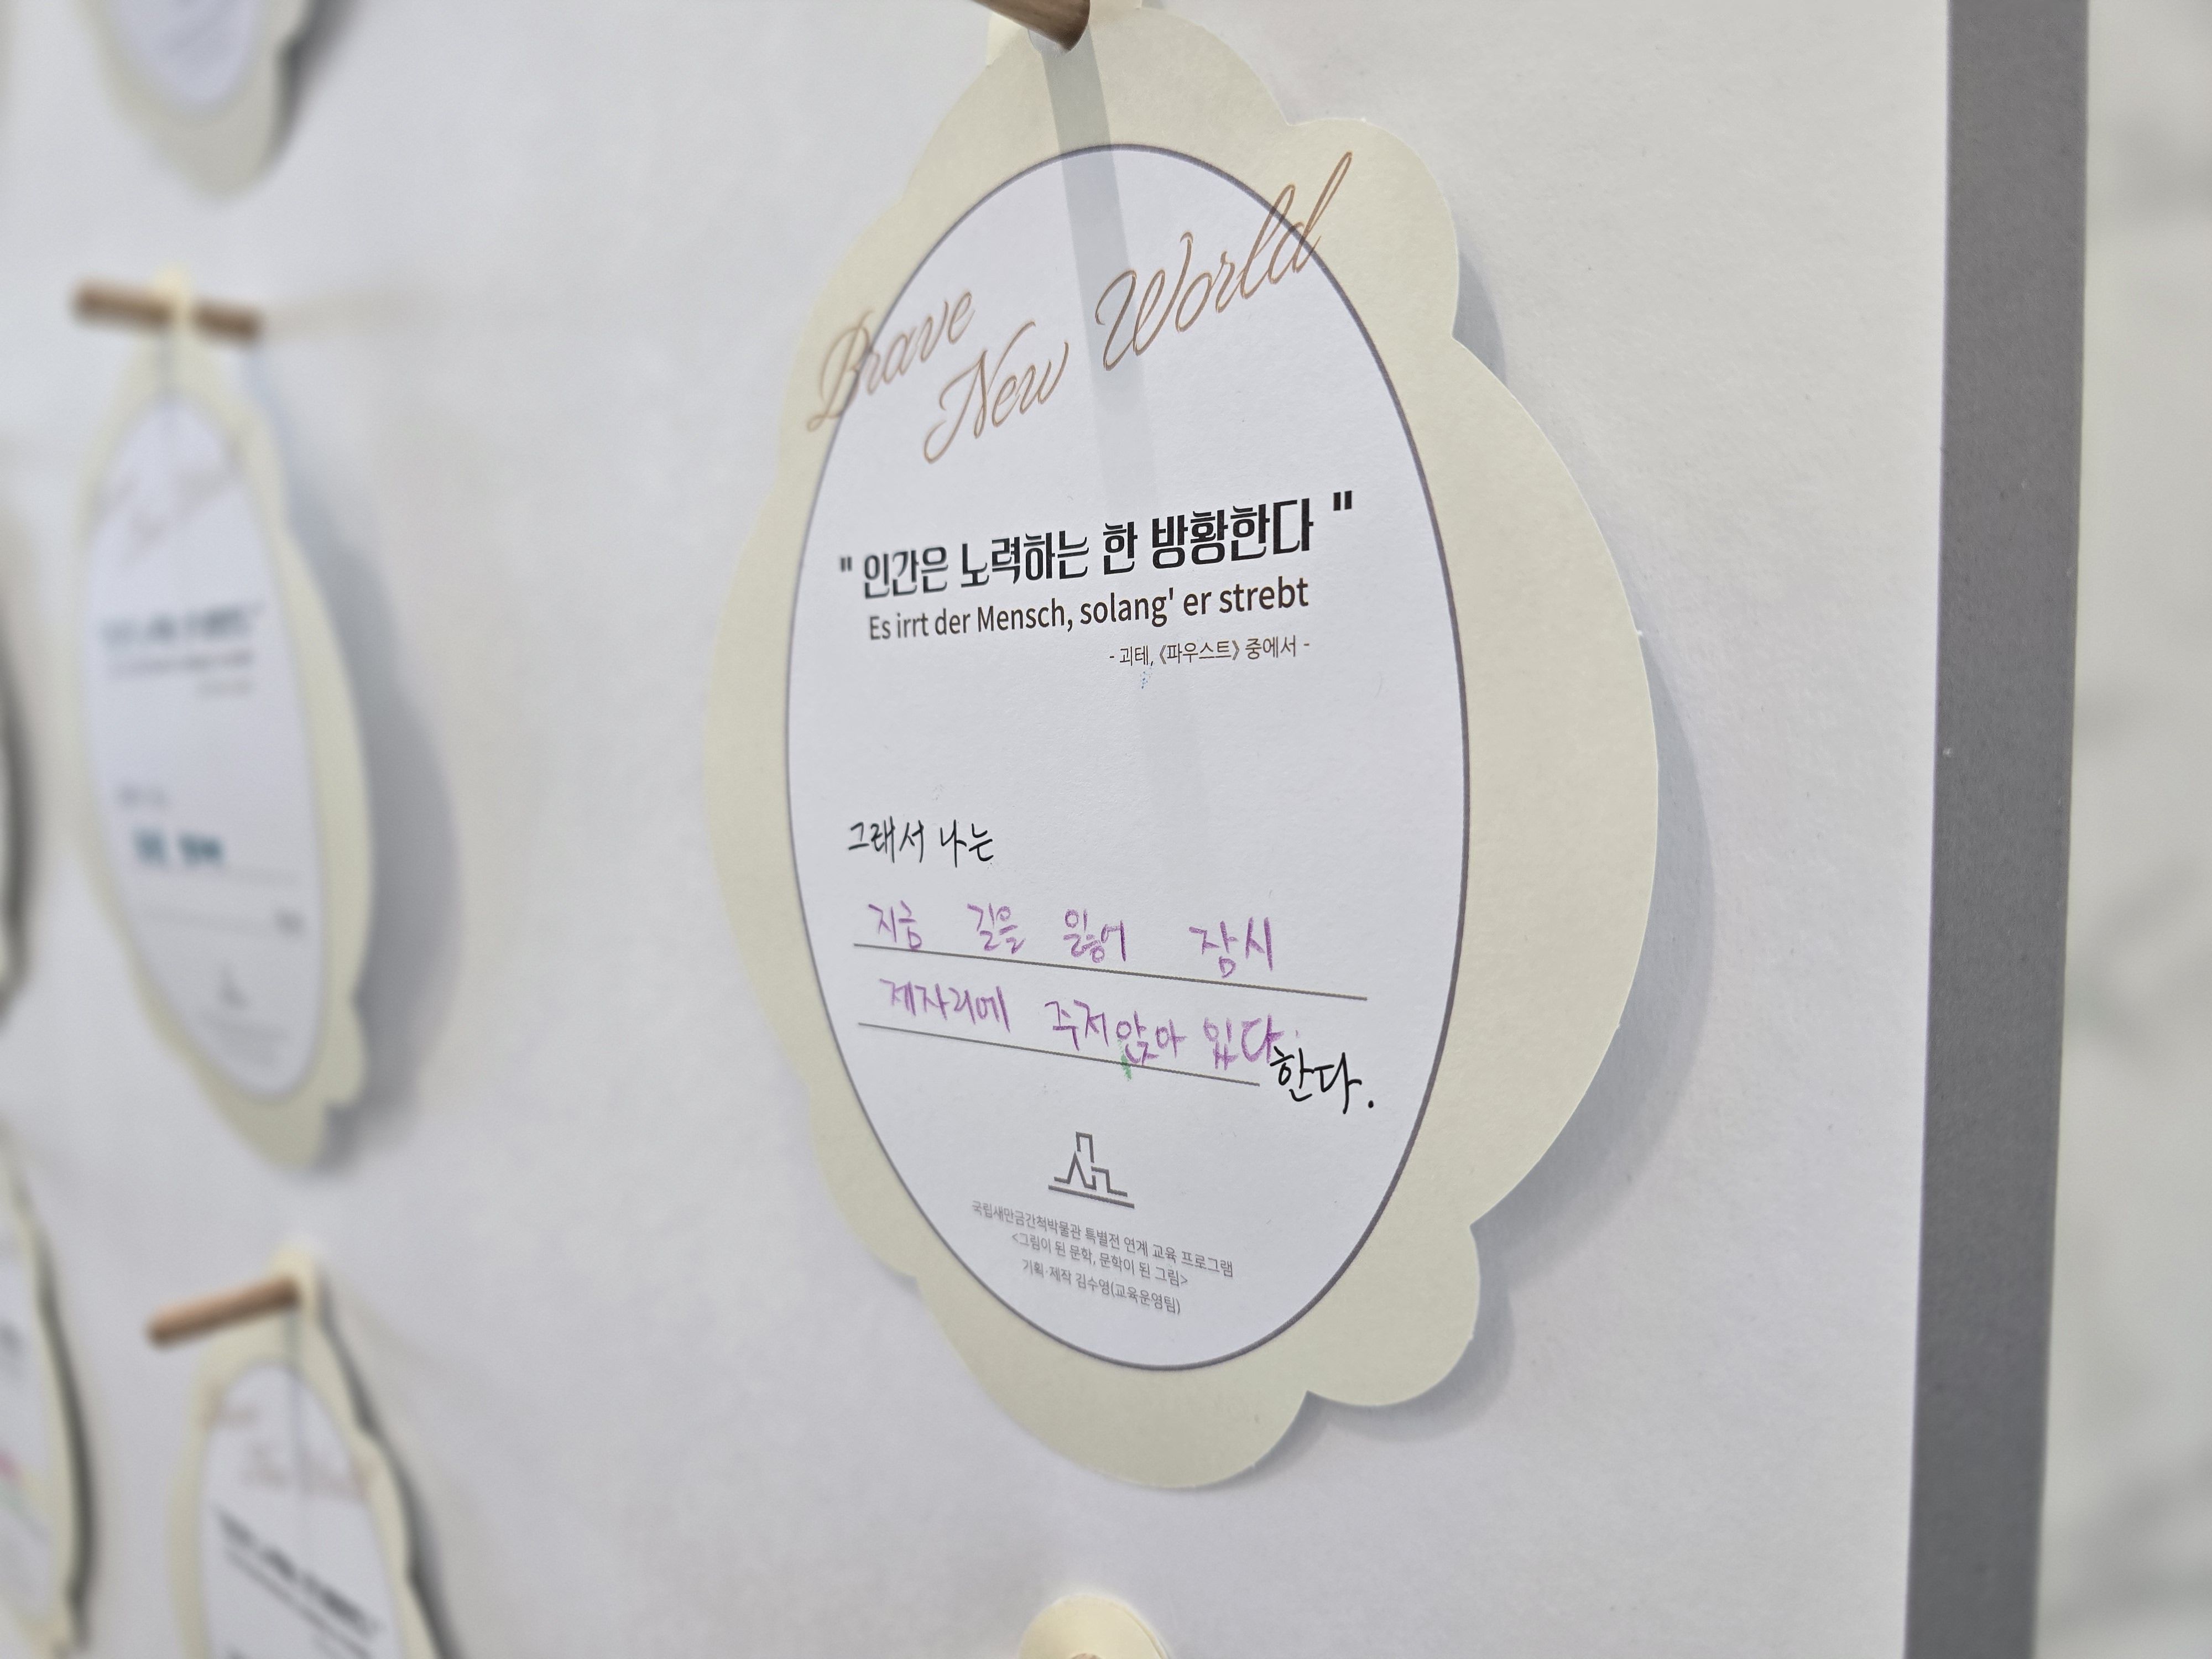 Brave
New World
" 인간은 노력하는 한 방황한다 "
Es irrt der Mensch, solang' er strebt
- 괴테, 《파우스트》 중에서 -
그래서 나는
지금 길을 잃어 잠시
제자리에 주저앉아 있다.
한다.
국립새만금간척박물관 특별전 연계 교육 프로그램
<그림이 된 문학, 문학이 된 그림>
기획·제작 김수영(교육운영팀)